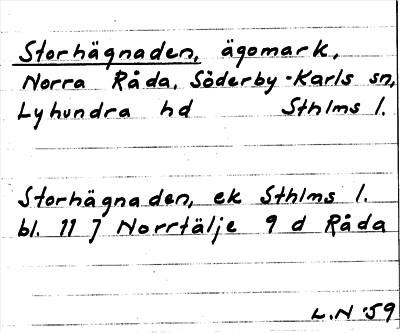 Storhägnaden, ägomark,
Norra Råda, Söderby-Karls sn,
Lyhundra hd Sthlms l.
Storhägnaden, ek Sthlms l.
bl. 11 J Norrtälje 9 d Råda
L.N '59